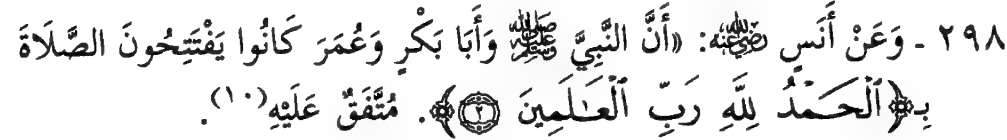 ٢٩٨ ـ وَعَنْ أَنَسٍ رَضِيَ اللَّهُ عَنْهُ: «أَنَّ النَّبِيَّ ﷺ وَأَبَا بَكْرٍ وَعُمَرَ كَانُوا يَفْتَتِحُونَ الصَّلَاةَ
بِـ﴿ٱلْحَمْدُ لِلَّهِ رَبِّ ٱلْعَـٰلَمِينَ ۝٢﴾. مُتَّفَقٌ عَلَيْهِ(١٠).